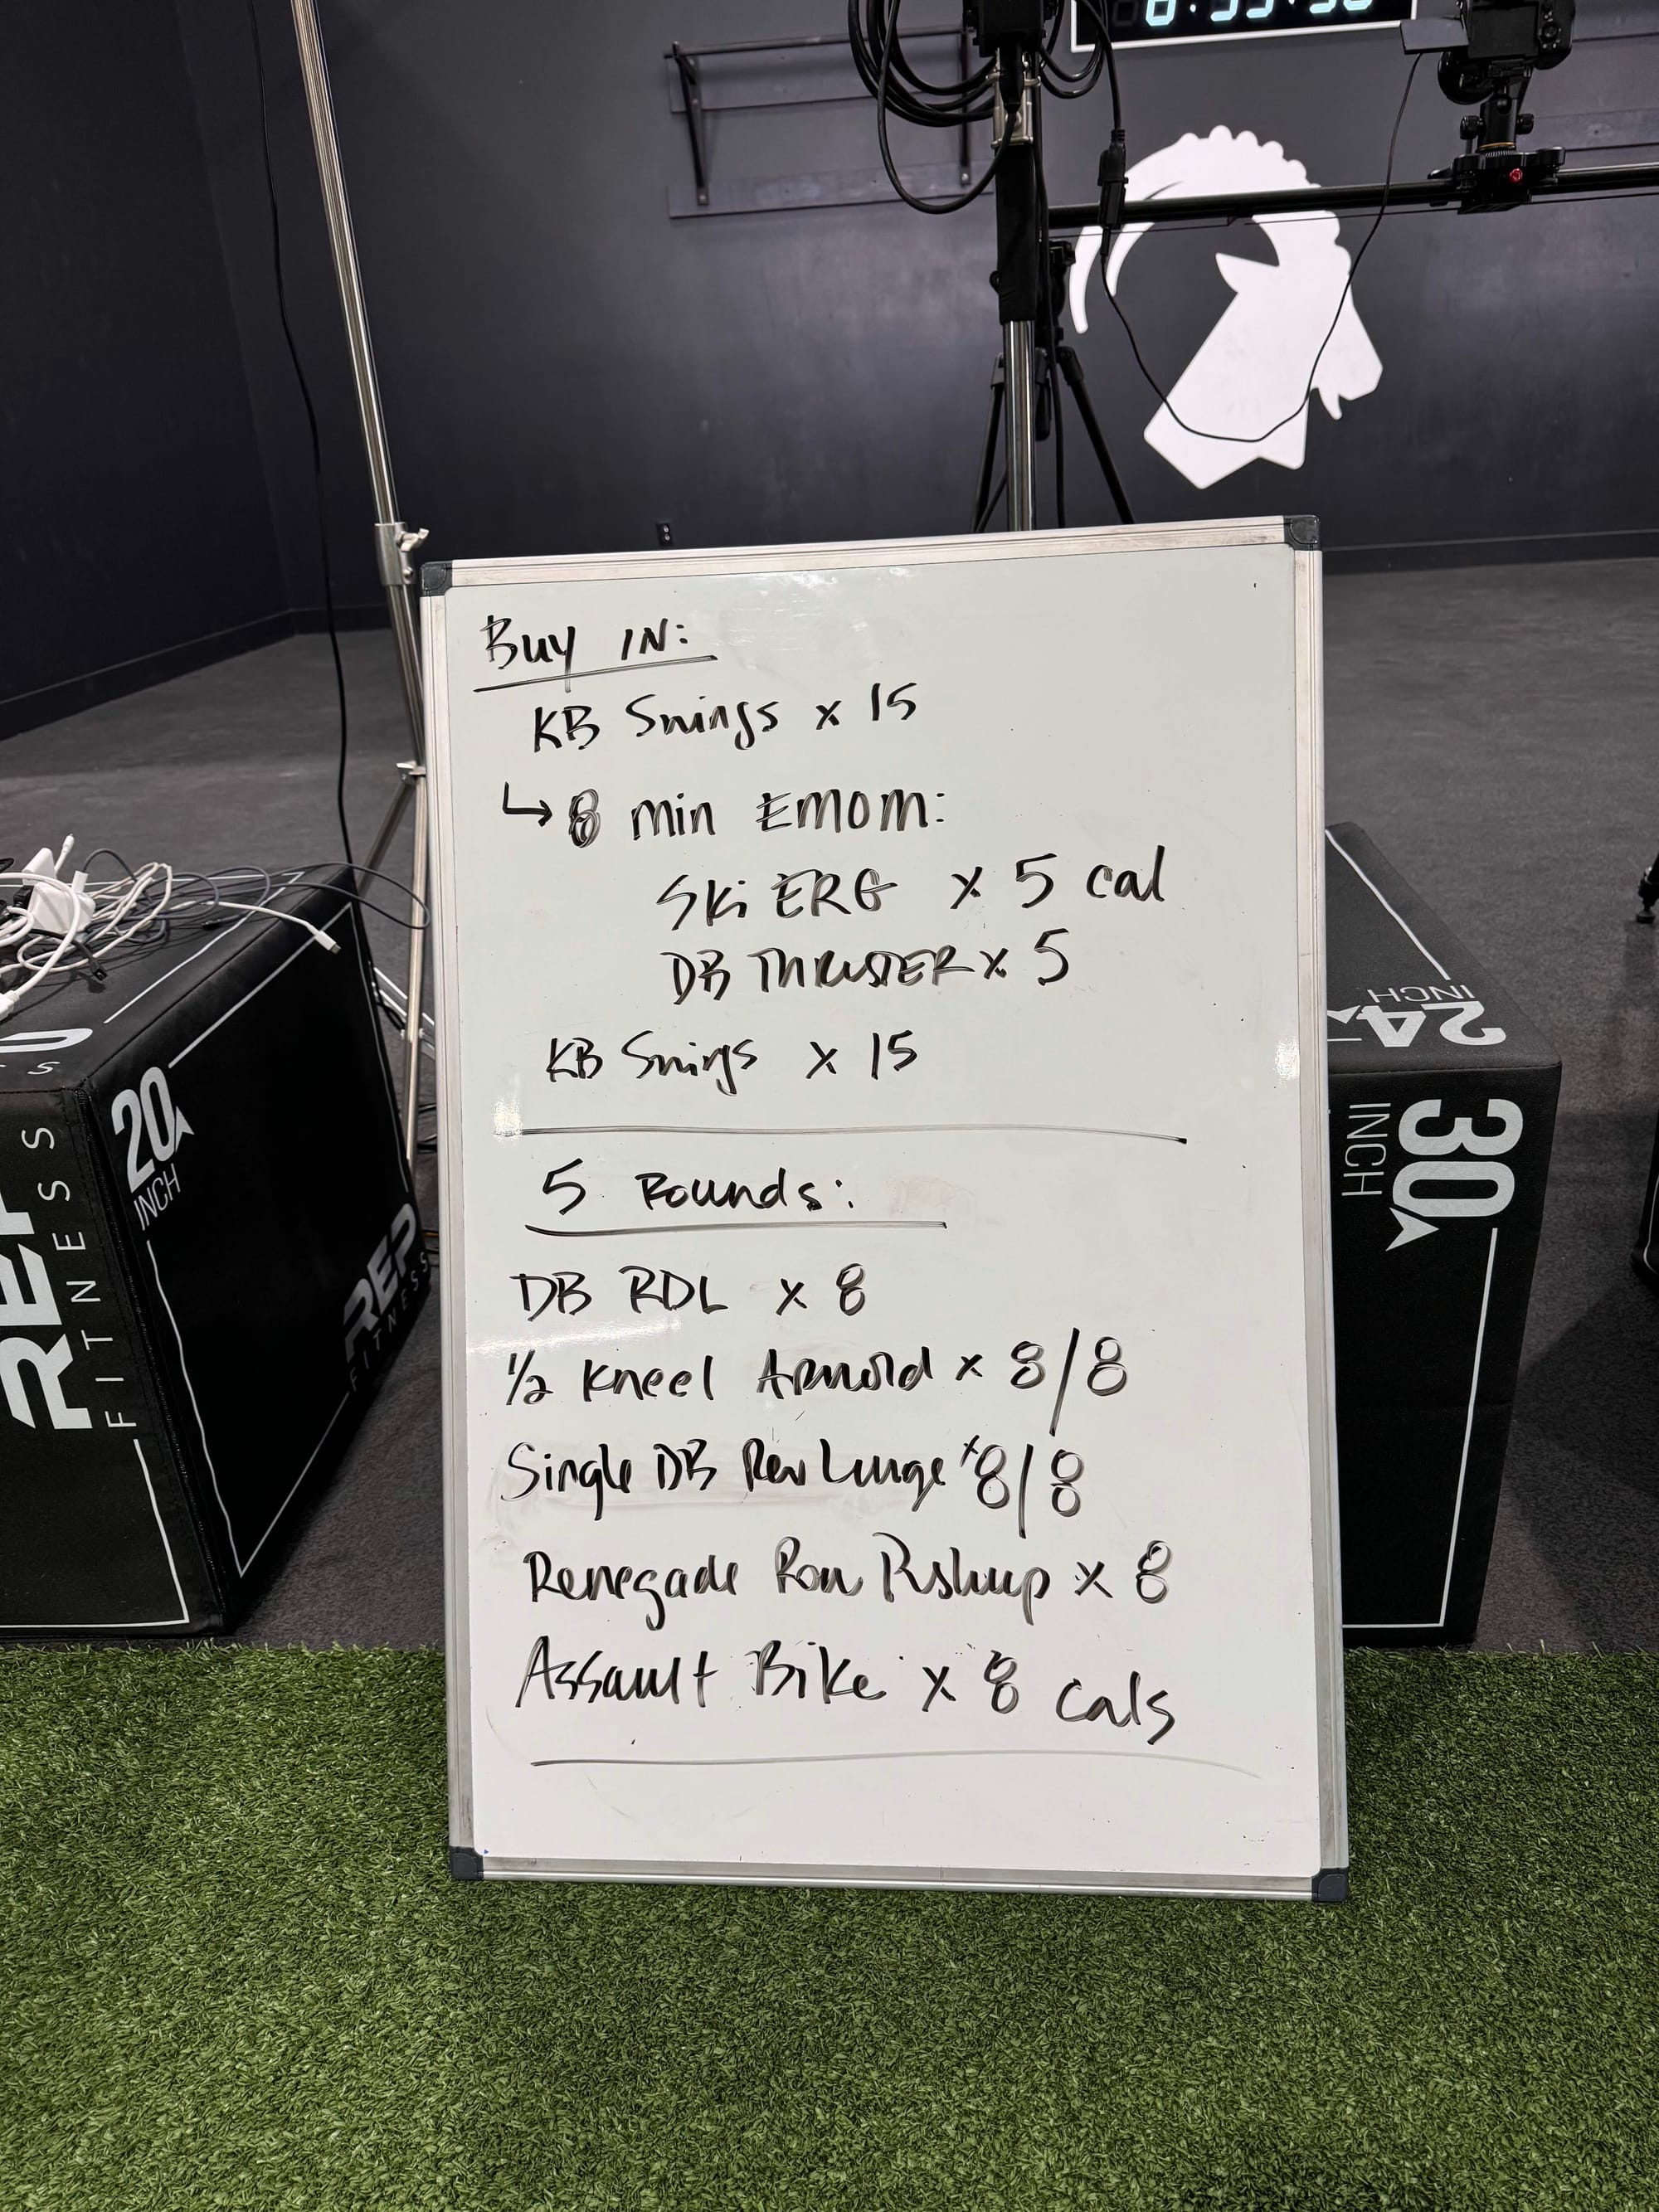 Buy IN:
KB Swings x 15
↳ 8 min EMOM:
Ski ERG x 5 cal
DB THRUSTER x 5
KB Swings x 15
5 Rounds:
DB RDL x 8
1/2 Kneel Arnold x 8/8
Single DB Rev Lunge x 8/8
Renegade Row Pushup x 8
Assault Bike x 8 cals
20
INCH
REP
FITNESS
REP
FITNESS
24
INCH
30
INCH